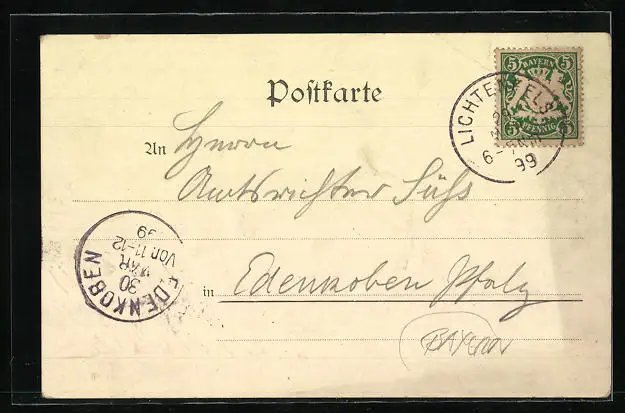 5 BAYERN 5
5 PFENNIG 5
LICHTENFELS
99
Postkarte
An Herrn
Amtsrichter Süß
in Edenkoben Pfalz
EDENKOBEN
30
MÄR
VOR.11-12
99
BAYERN